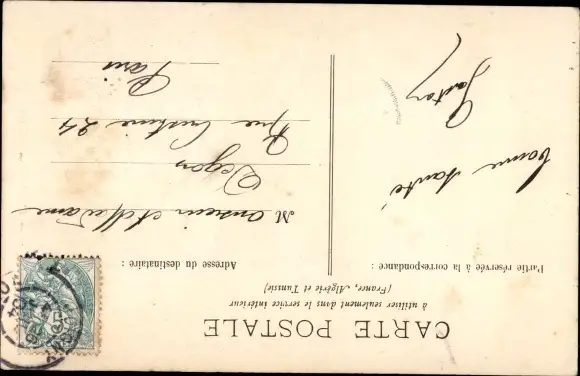 CARTE POSTALE
à utiliser seulement dans le service intérieur
(France, Algérie et Tunisie)
Partie réservée à la correspondance :
Adresse du destinataire :
bonne santé
Gaston
Monsieur et Madame
Degon
Rue Custine 24
Paris